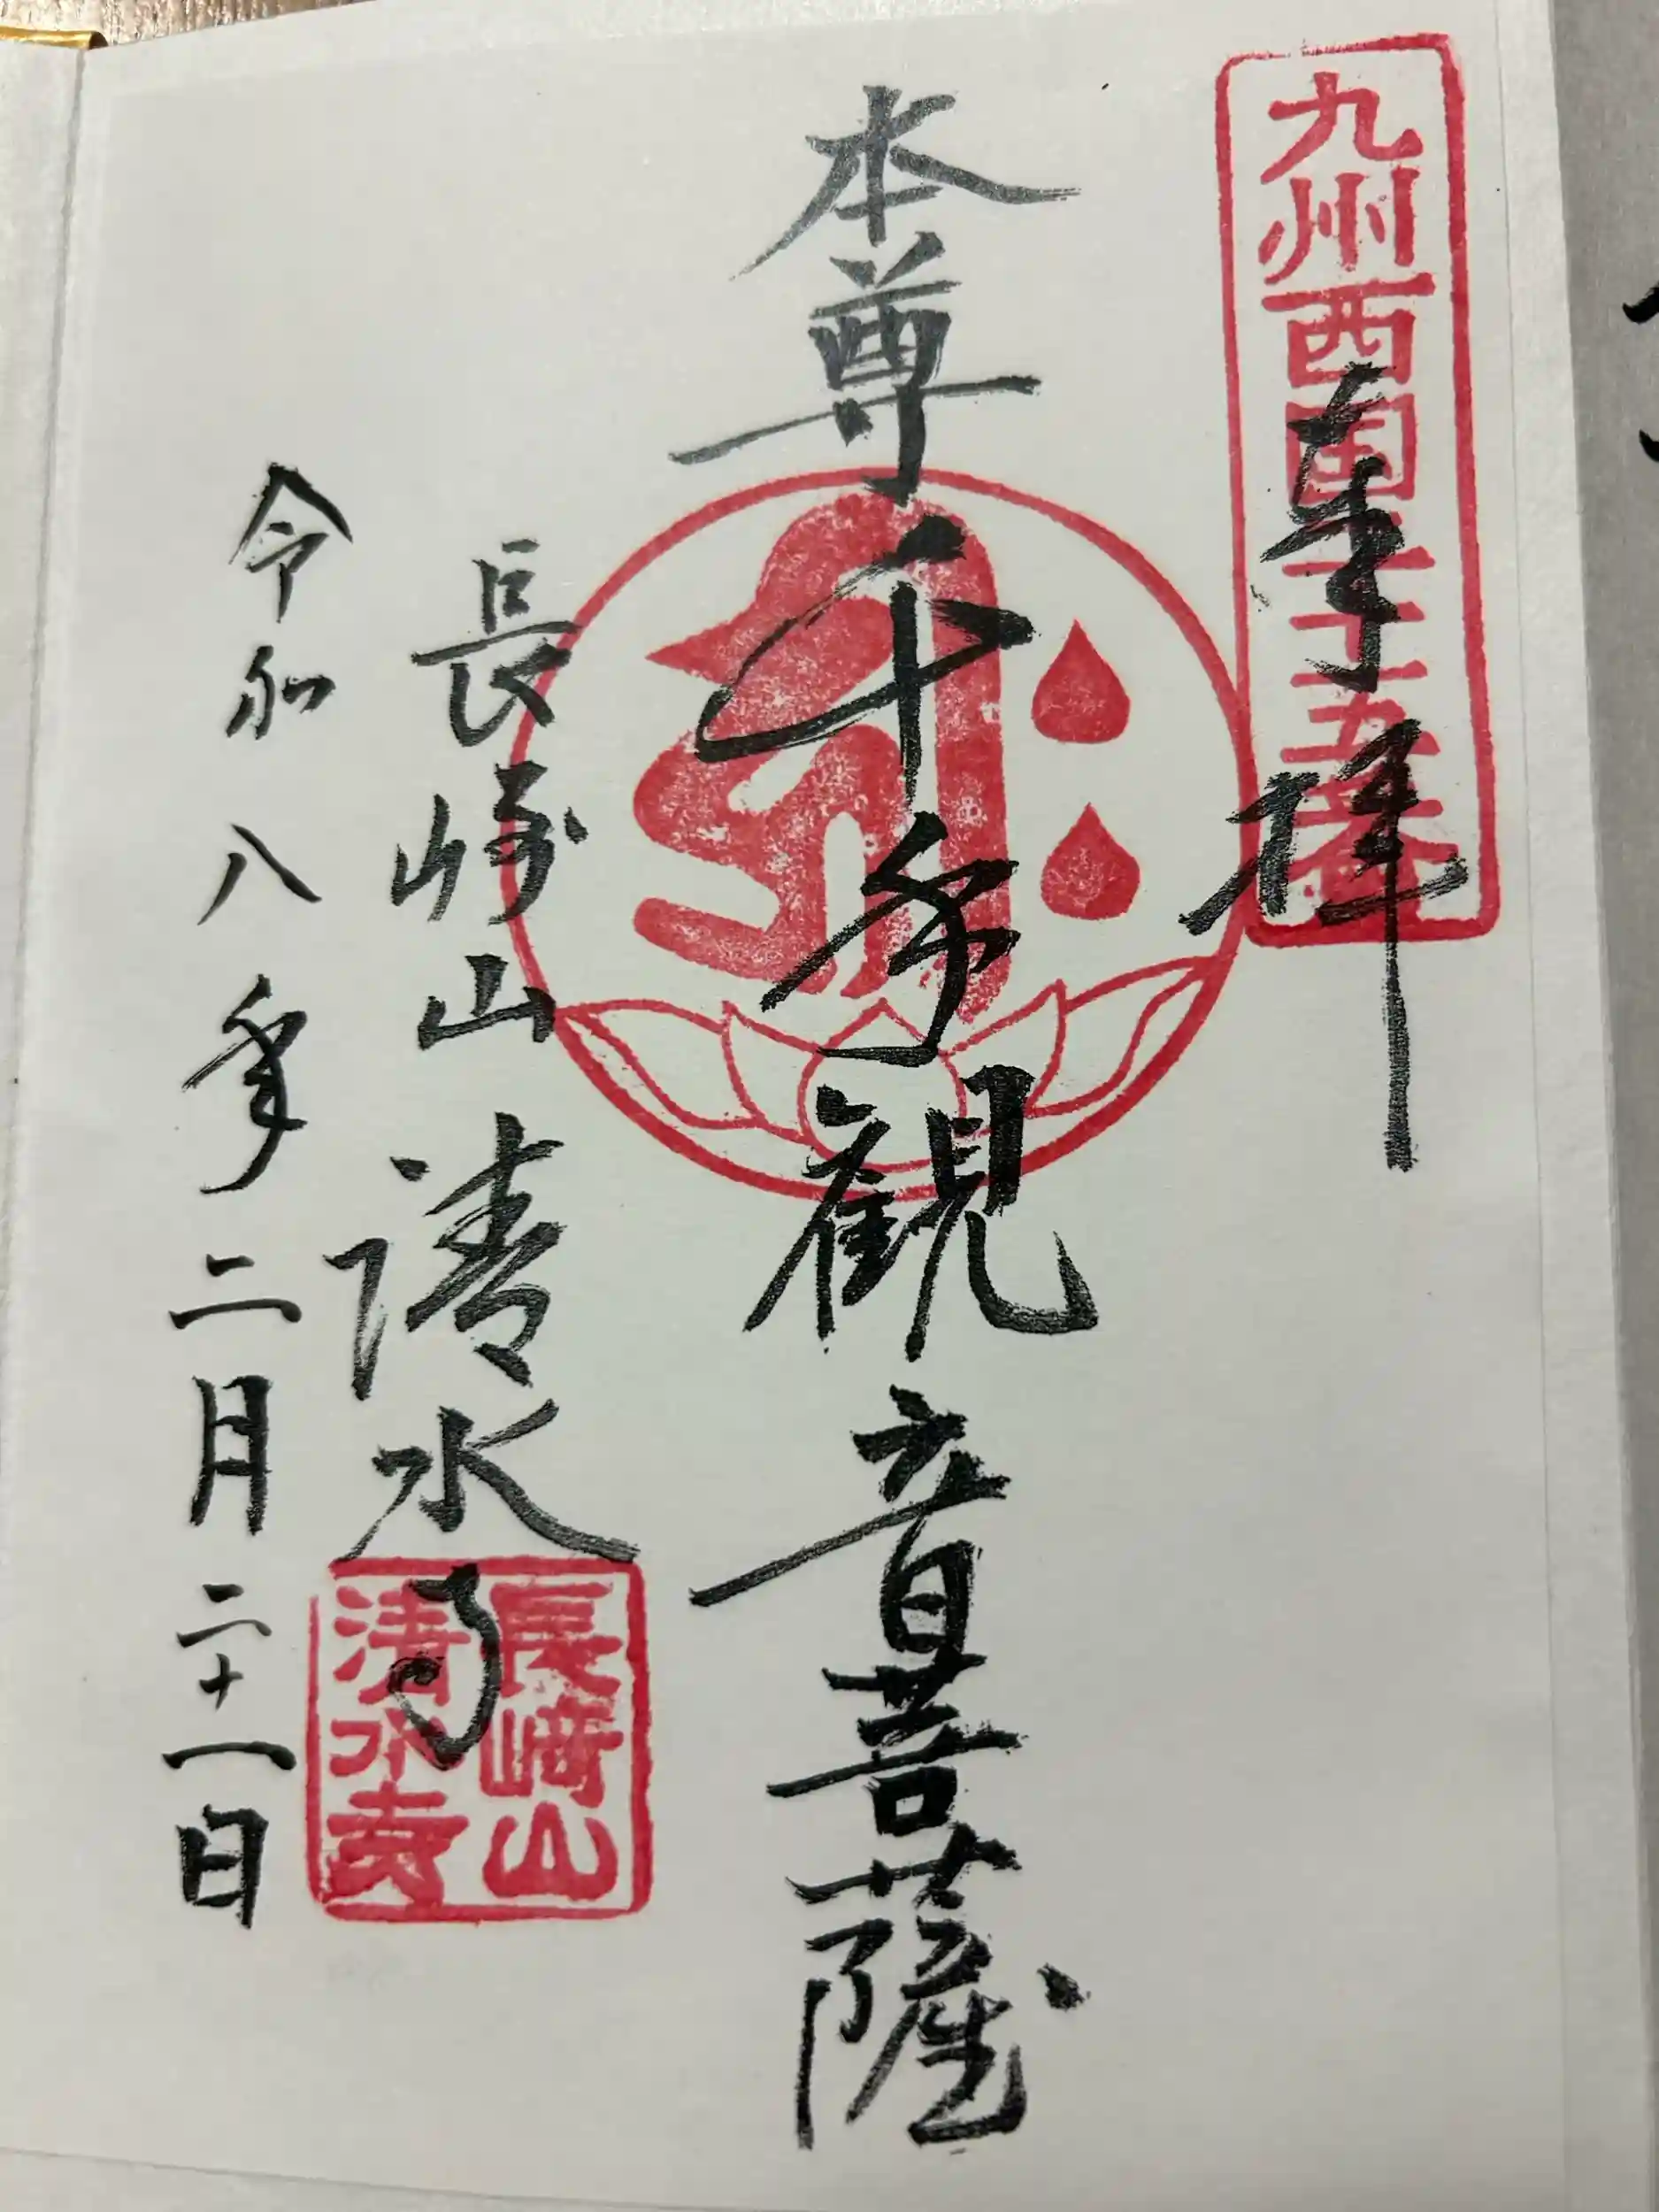 九州西国二十五番
奉拝
本尊千手観音菩薩
長崎山 清水寺
長崎山
清水寺
令和八年二月二十一日